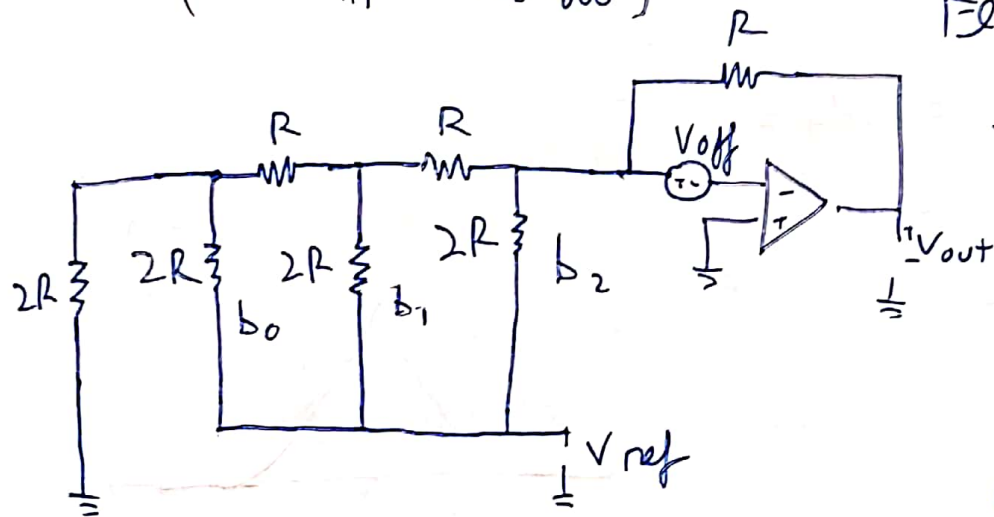 R
R
R
Voff
+-
-
+
2R
2R
2R
2R
b0
b1
b2
+
-
Vout
Vref